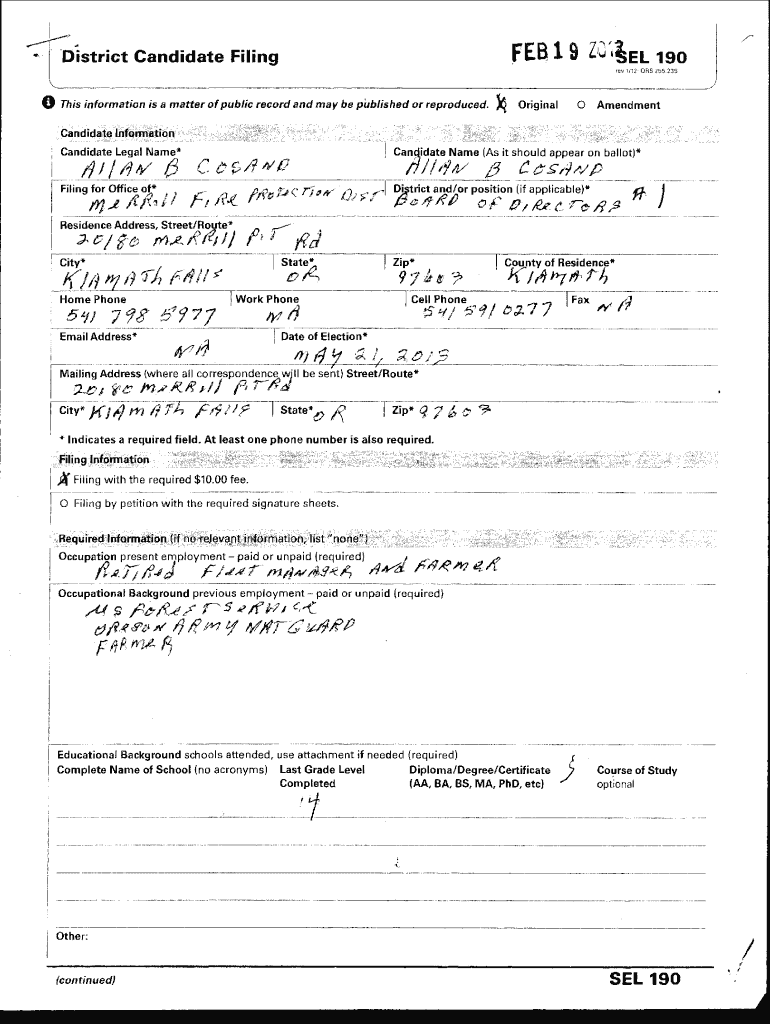 District Candidate Filing
FEB 19 2013
SEL 190
rev 1/12 ORS 255.235
This information is a matter of public record and may be published or reproduced. X Original O Amendment
Candidate Information
Candidate Legal Name* Candidate Name (As it should appear on ballot)*
Allan B Cosand Allan B Cosand
Filing for Office of* District and/or position (if applicable)*
Merrill Fire Protection Dist Board of Directors #1
Residence Address, Street/Route*
20180 Merrill Pit Rd
City* State* Zip* County of Residence*
Klamath Falls OR 97603 Klamath
Home Phone Work Phone Cell Phone Fax
541 798 5977 NA 541 591 0277 NA
Email Address* Date of Election*
NA May 21, 2013
Mailing Address (where all correspondence will be sent) Street/Route*
20180 Merrill Pit Rd
City* Klamath Falls State* OR Zip* 97603
* Indicates a required field. At least one phone number is also required.
Filing Information
X Filing with the required $10.00 fee.
O Filing by petition with the required signature sheets.
Required Information (if no relevant information, list "none")
Occupation present employment – paid or unpaid (required)
Retired Fleet Manager and Farmer
Occupational Background previous employment – paid or unpaid (required)
US Forest Service
Oregon Army Nat Guard
Farmer
Educational Background schools attended, use attachment if needed (required)
Complete Name of School (no acronyms) Last Grade Level Diploma/Degree/Certificate Course of Study
Completed (AA, BA, BS, MA, PhD, etc) optional
14
Other:
(continued) SEL 190